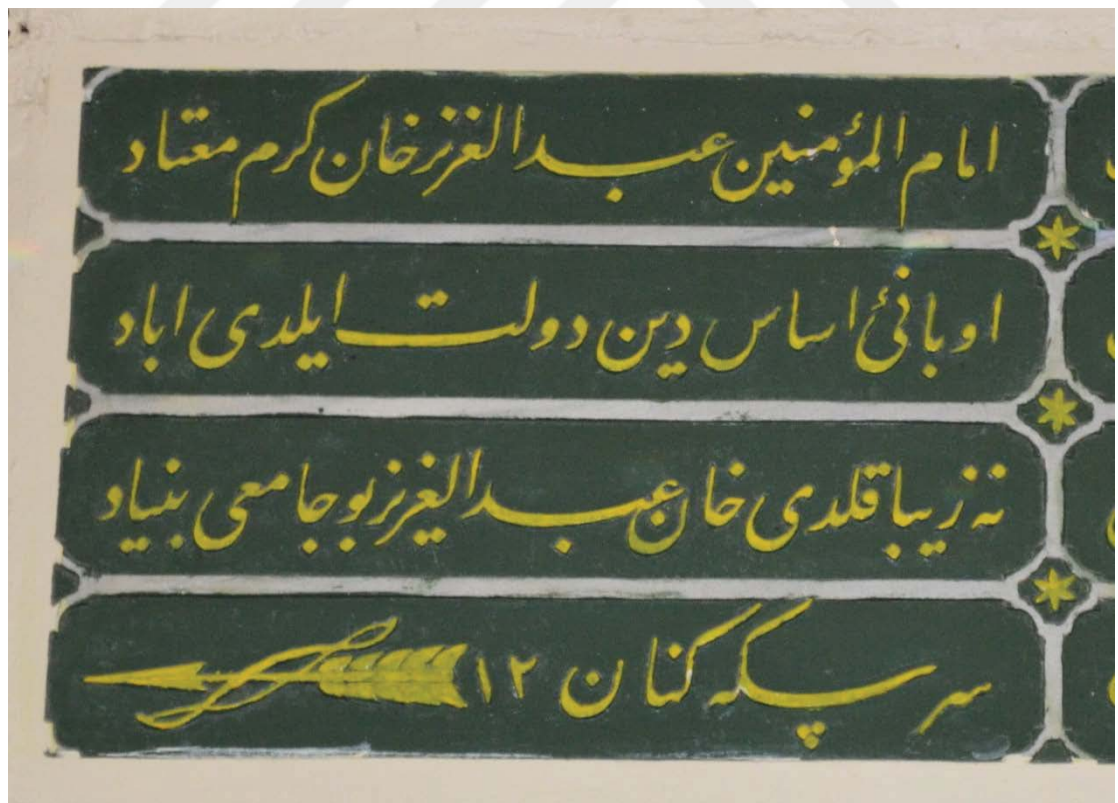 امام المؤمنين عبد العزيز خان كرم معتاد
او بانئ اساس دين دولت ايلدى اباد
نه زيبا قلدى خان عبد العزيز بو جامعى بنياد
كنان ١٢